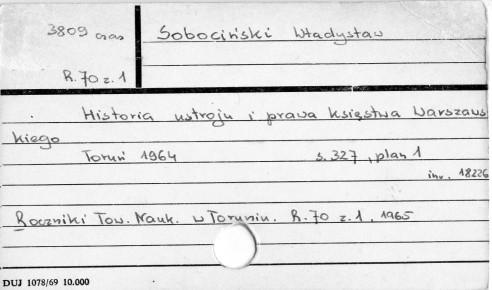 3809 czas
R.70 z.1
Sobociński Władysław
Historia ustroju i prawa Księstwa Warszaws
kiego
Toruń 1964 s. 327, plan 1
inw. 18226
Roczniki Tow. Nauk. w Toruniu. R.70 z.1, 1965
DUJ 1078/69 10.000